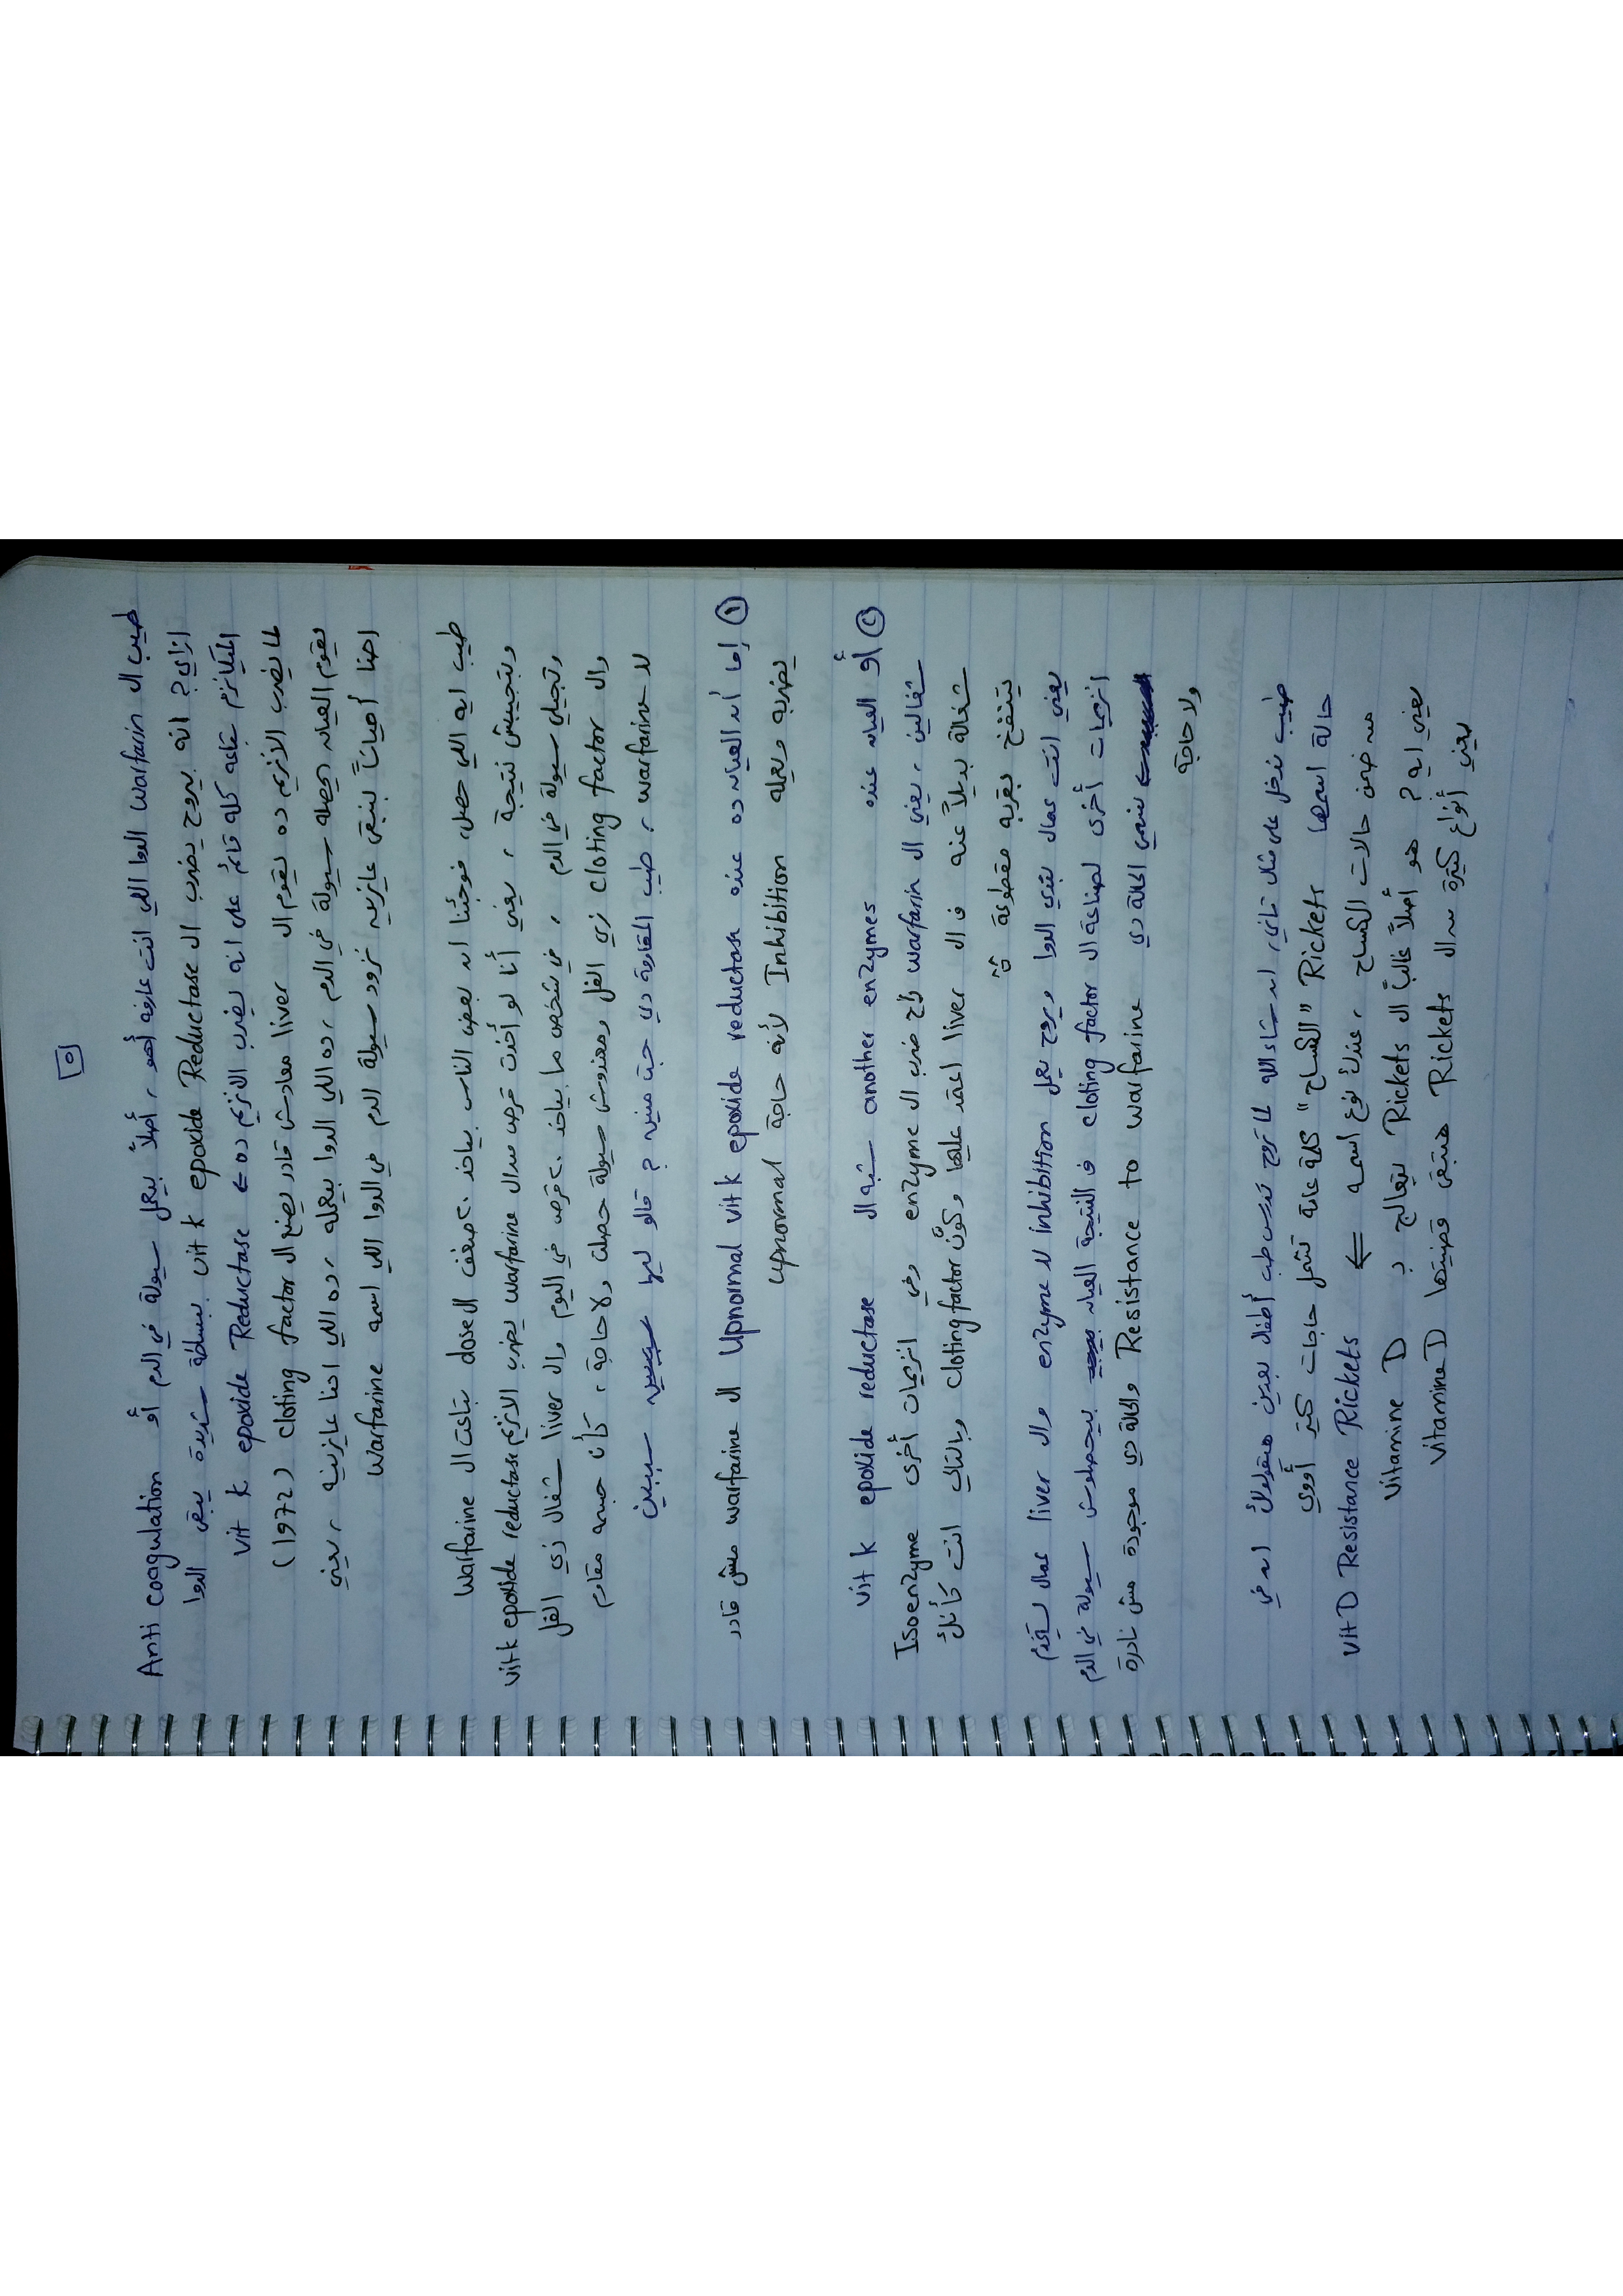 ٥
طيب ال warfarin الدوا اللي انت عارفه أهو ، أصلاً بيعمل سيولة في الدم أو Anti coagulation
ازاي؟ انه بيروح يضرب ال vit k epoxide Reductase ببساطة شديدة يبقى الدوا
الميكانزم بتاعه كله قائم على انه يضرب الانزيم ده ← vit k epoxide Reductase
لما يضرب الانزيم ده يقوم ال liver معادش قادر يصنع ال clotting factor (1972)
يقوم العيان يحصله سيولة في الدم ، ده اللي الدوا بيعمله ، ده اللي احنا عايزينه ، يعني
احنا أحياناً بنبقى عايزين نزود سيولة الدم في الدوا اللي اسمه warfarine
طيب ايه اللي حصل، فوجئنا ان بعض الناس بياخد ٢٠ ضعف ال dose بتاعت ال warfarine
وبتجيبش نتيجة ، يعني أنا لو أخدت قرص من ال warfarine يضرب الانزيم vit k epoxide reductase
وتجيلي سيولة في الدم ، في شخص ما بياخد ٢٠ قرص في اليوم وال liver شغال زي الفل
وال cloting factor زي الفل ومعندوش سيولة حصلت ولا حاجة ، كأن جسمه مقاوم
لل warfarine ، طيب المقاومة دي جت منين ؟ قالو ليها سببين
① إما أن العيان ده عنده vit k epoxide reductase ال upnormal warfarine مش قادر
يضربه ويعمله Inhibition لأنه حاجة upnormal
② أو العيان عنده another enzymes شبه ال vit k epoxide reductase
شغالين ، يعني ال warfarin راح ضرب ال enzyme وفي انزيمات أخرى Isoenzyme
شغالة بديلاً عنه فال liver اعتمد عليها وكوّن clotting factor وبالتالي انت كأنك
بتنفخ بقربه مقطوعة
يعني انت عمال بتدي الدوا ويروح يعمل inhibition لل enzyme وال liver عمال يستخدم
انزيمات أخرى لصناعة ال cloting factor فالنتيجة العيان بيحصلوش سيولة في الدم
نسمي الحالة دي Resistance to warfarine والحالة دي موجودة مش نادرة
ولا حاجة
طيب ندخل على مثال تاني، ان شاء الله لما تروح تدرس طب أطفال بعدين هيقولولك ان في
حالة اسمها Rickets "الكساح" كلمة عامة تشمل حاجات كتير أووي
من ضمن حالات الكساح ، عندك نوع اسمه ← Vit D Resistance Rickets
يعني ايه ؟ هو أصلاً غالباً ال Rickets بيتعالج ب Vitamine D
يعني أنواع كتيرة من ال Rickets هتبقى قصيتها vitamine D